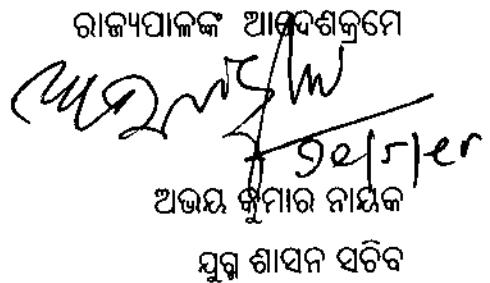 ରାଜ୍ୟପାଳଙ୍କ ଆଦେଶକ୍ରମେ
ଅଭୟ କୁମାର ନାୟକ
ଯୁଗ୍ମ ଶାସନ ସଚିବ